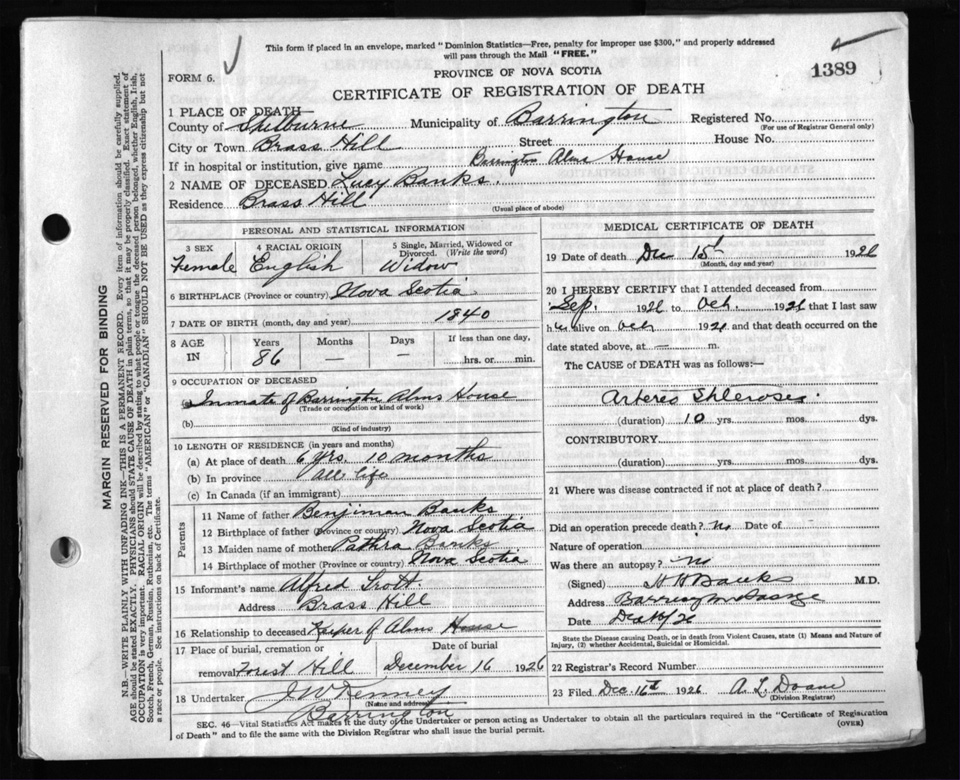 This form if placed in an envelope, marked "Dominion Statistics—Free, penalty for improper use $300," and properly addressed
will pass through the Mail "FREE."
1389
FORM 6.
PROVINCE OF NOVA SCOTIA
CERTIFICATE OF REGISTRATION OF DEATH
1 PLACE OF DEATH—
County of Shelburne Municipality of Barrington Registered No.
(For use of Registrar General only)
City or Town Brass Hill Street House No.
If in hospital or institution, give name Barrington Alms House
2 NAME OF DECEASED Lucy Banks.
Residence Brass Hill
(Usual place of abode)
PERSONAL AND STATISTICAL INFORMATION
3 SEX 4 RACIAL ORIGIN 5 Single, Married, Widowed or
Divorced. (Write the word)
Female English Widow
6 BIRTHPLACE (Province or country) Nova Scotia
7 DATE OF BIRTH (month, day and year) 1840
8 AGE IN Years Months Days If less than one day,
86 — — hrs. or min.
9 OCCUPATION OF DECEASED
(a) Inmate of Barrington Alms House
(Trade or occupation or kind of work)
(b)
(Kind of industry)
10 LENGTH OF RESIDENCE (in years and months)
(a) At place of death 6 yrs. 10 months
(b) In province All life
(c) In Canada (if an immigrant)
Parents
11 Name of father Benjiman Banks
12 Birthplace of father (Province or country) Nova Scotia
13 Maiden name of mother Banks
14 Birthplace of mother (Province or country) Nova Scotia
15 Informant's name Alfred Trott.
Address Brass Hill
16 Relationship to deceased Keeper of Alms House
17 Place of burial, cremation or Date of burial
removal Forest Hill December 16 1926
18 Undertaker J W Kenney
(Name and address)
Barrington
MEDICAL CERTIFICATE OF DEATH
19 Date of death Dec 15th 1926
(Month, day and year)
20 I HEREBY CERTIFY that I attended deceased from
Sep. 1926 to Oct. 1926 that I last saw
her alive on Oct 1926 and that death occurred on the
date stated above, at — m.
The CAUSE of DEATH was as follows:—
Arteres Skleroses.
(duration) 10 yrs. mos. dys.
CONTRIBUTORY
(duration) yrs. mos. dys.
21 Where was disease contracted if not at place of death?
Did an operation precede death? No Date of
Nature of operation
Was there an autopsy? No
(Signed) H H Banks M.D.
Address Barrington Passage
Date Dec 16/26
State the Disease causing Death, or in death from Violent Causes, state (1) Means and Nature of
Injury, (2) whether Accidental, Suicidal or Homicidal.
22 Registrar's Record Number
23 Filed Dec. 16th 1926 A. L. Doane
(Division Registrar)
SEC. 46—Vital Statistics Act makes it the duty of the Undertaker or person acting as Undertaker to obtain all the particulars required in the "Certificate of Registration
of Death" and to file the same with the Division Registrar who shall issue the burial permit.
(OVER)
MARGIN RESERVED FOR BINDING
N.B.—WRITE PLAINLY WITH UNFADING INK—THIS IS A PERMANENT RECORD. Every item of information should be carefully supplied.
AGE should be stated EXACTLY. PHYSICIANS should STATE CAUSE OF DEATH in plain terms, so that it may be properly classified. Exact statement of
OCCUPATION is very important. RACIAL ORIGIN will be described by stating to what people or tongue the deceased person belonged, whether English, Irish,
Scotch, French, German, Russian, Ruthenian, etc. The terms "AMERICAN" or "CANADIAN" SHOULD NOT BE USED as they express citizenship but not
a race or people. See instructions on back of Certificate.